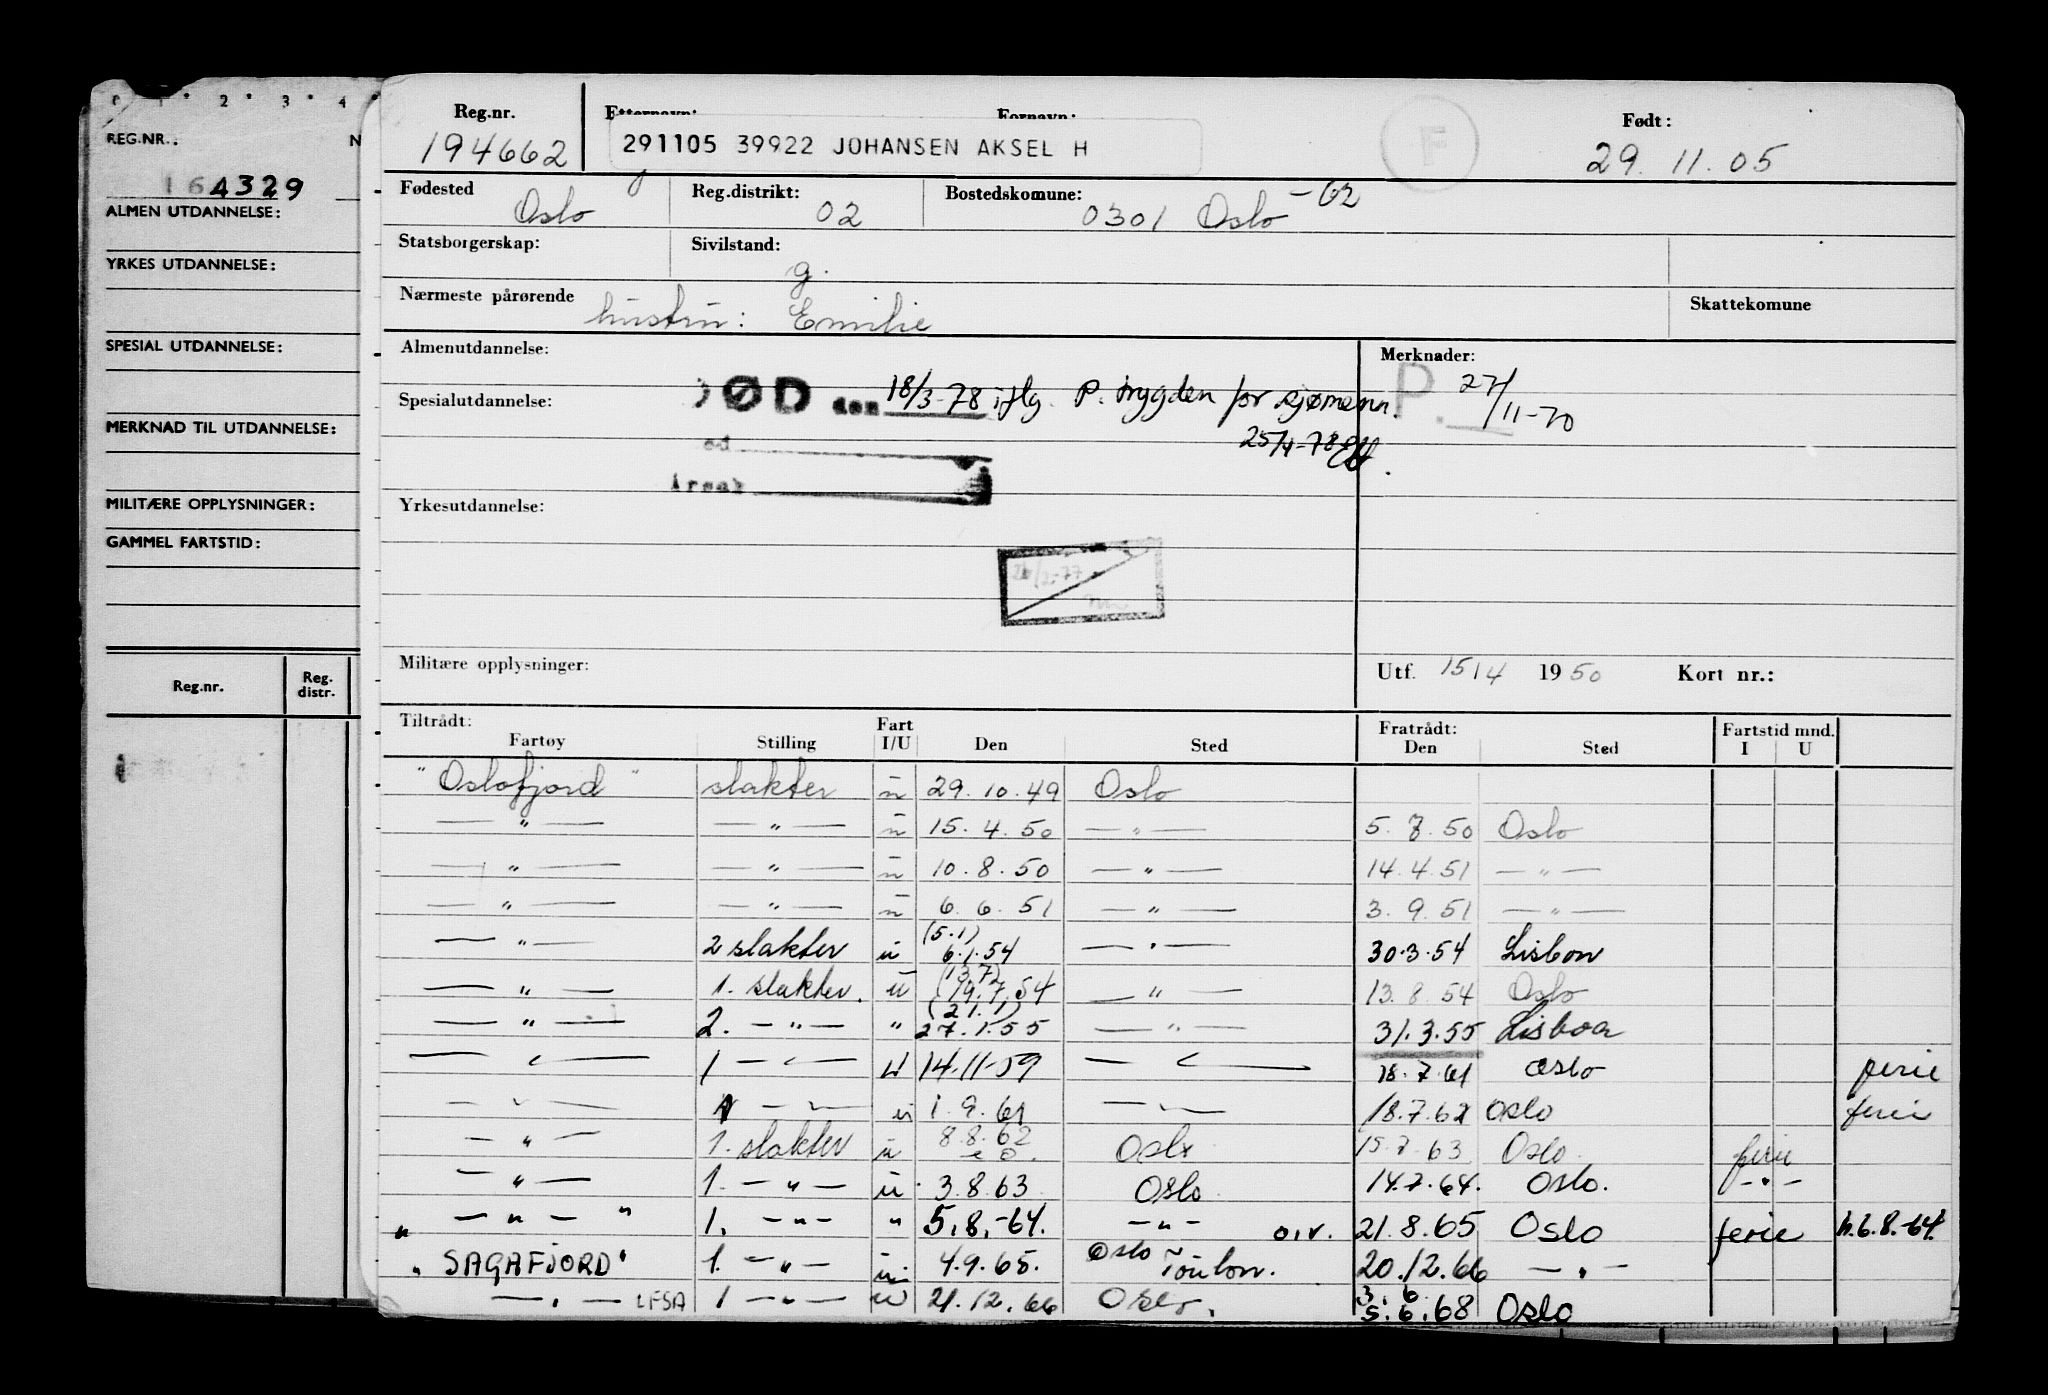 0 1 2 3 4
REG.NR.: N
164329
ALMEN UTDANNELSE:
YRKES UTDANNELSE:
SPESIAL UTDANNELSE:
MERKNAD TIL UTDANNELSE:
MILITÆRE OPPLYSNINGER:
GAMMEL FARTSTID:
Reg.nr. Reg. distr.
Reg.nr. Etternavn: Fornavn: F Født:
194662 291105 39922 JOHANSEN AKSEL H 29. 11. 05
Fødested Oslo Reg.distrikt: 02 Bostedskomune: 0301 Oslo -62
Statsborgerskap: Sivilstand: g.
Nærmeste pårørende hustru: Emilie Skattekomune
Almenutdannelse: Merknader:
ØD den 18/3-78 iflg. P. trygden for sjømenn. P. 27/11-70
Spesialutdannelse:
25/4-78
ed
Årsak
Yrkesutdannelse:
Militære opplysninger: Utf. 15/4 1950 Kort nr.:
Tiltrådt: Fart Fratrådt: Fartstid mnd.
Fartøy Stilling I/U Den Sted Den Sted I U
"Oslofjord" slakter u 29.10.49 Oslo
— " — — " — u 15.4.50 — " — 5.7.50 Oslo
— " — — " — u 10.8.50 — " — 14.4.51 — " —
— " — — " — u 6.6.51 — " — 3.9.51 — " —
— " — 2 slakter u (5.1) 6.1.54 — " — 30.3.54 Lisbon
— " — 1. slakter. u (13.7) 19.7.54 — " — 13.8.54 Oslo
— " — 2. — " — " (21.1) 27.1.55 — " — 31.3.55 Lisboa
— " — 1 — " — U 14.11-59 — " — 18.7.61 Oslo ferie
— " — 1 — " — u 1.9.61 — " — 18.7.62 Oslo ferie
— " — 1. slakter u 8.8.62 Oslo 15.7.63 Oslo. ferie
— " — 1. — " — u 3.8.63 Oslo. 14.7.64. Oslo. — " —
" — " — " 1. — " — " 5.8.-64. — " — o.v. 21.8.65 Oslo ferie h.6.8.-64.
"SAGAFJORD" 1. — " — u 4.9.65. Oslo Toulon. 20.12.66 — " —
— " — LFSA 1 — " — u 21.12.66 Oslo. 3.6. 5.6.68 Oslo